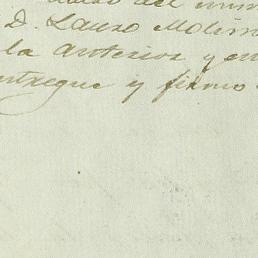 del
D. Lauro Molin
la anterior y en
ntregue y firmo